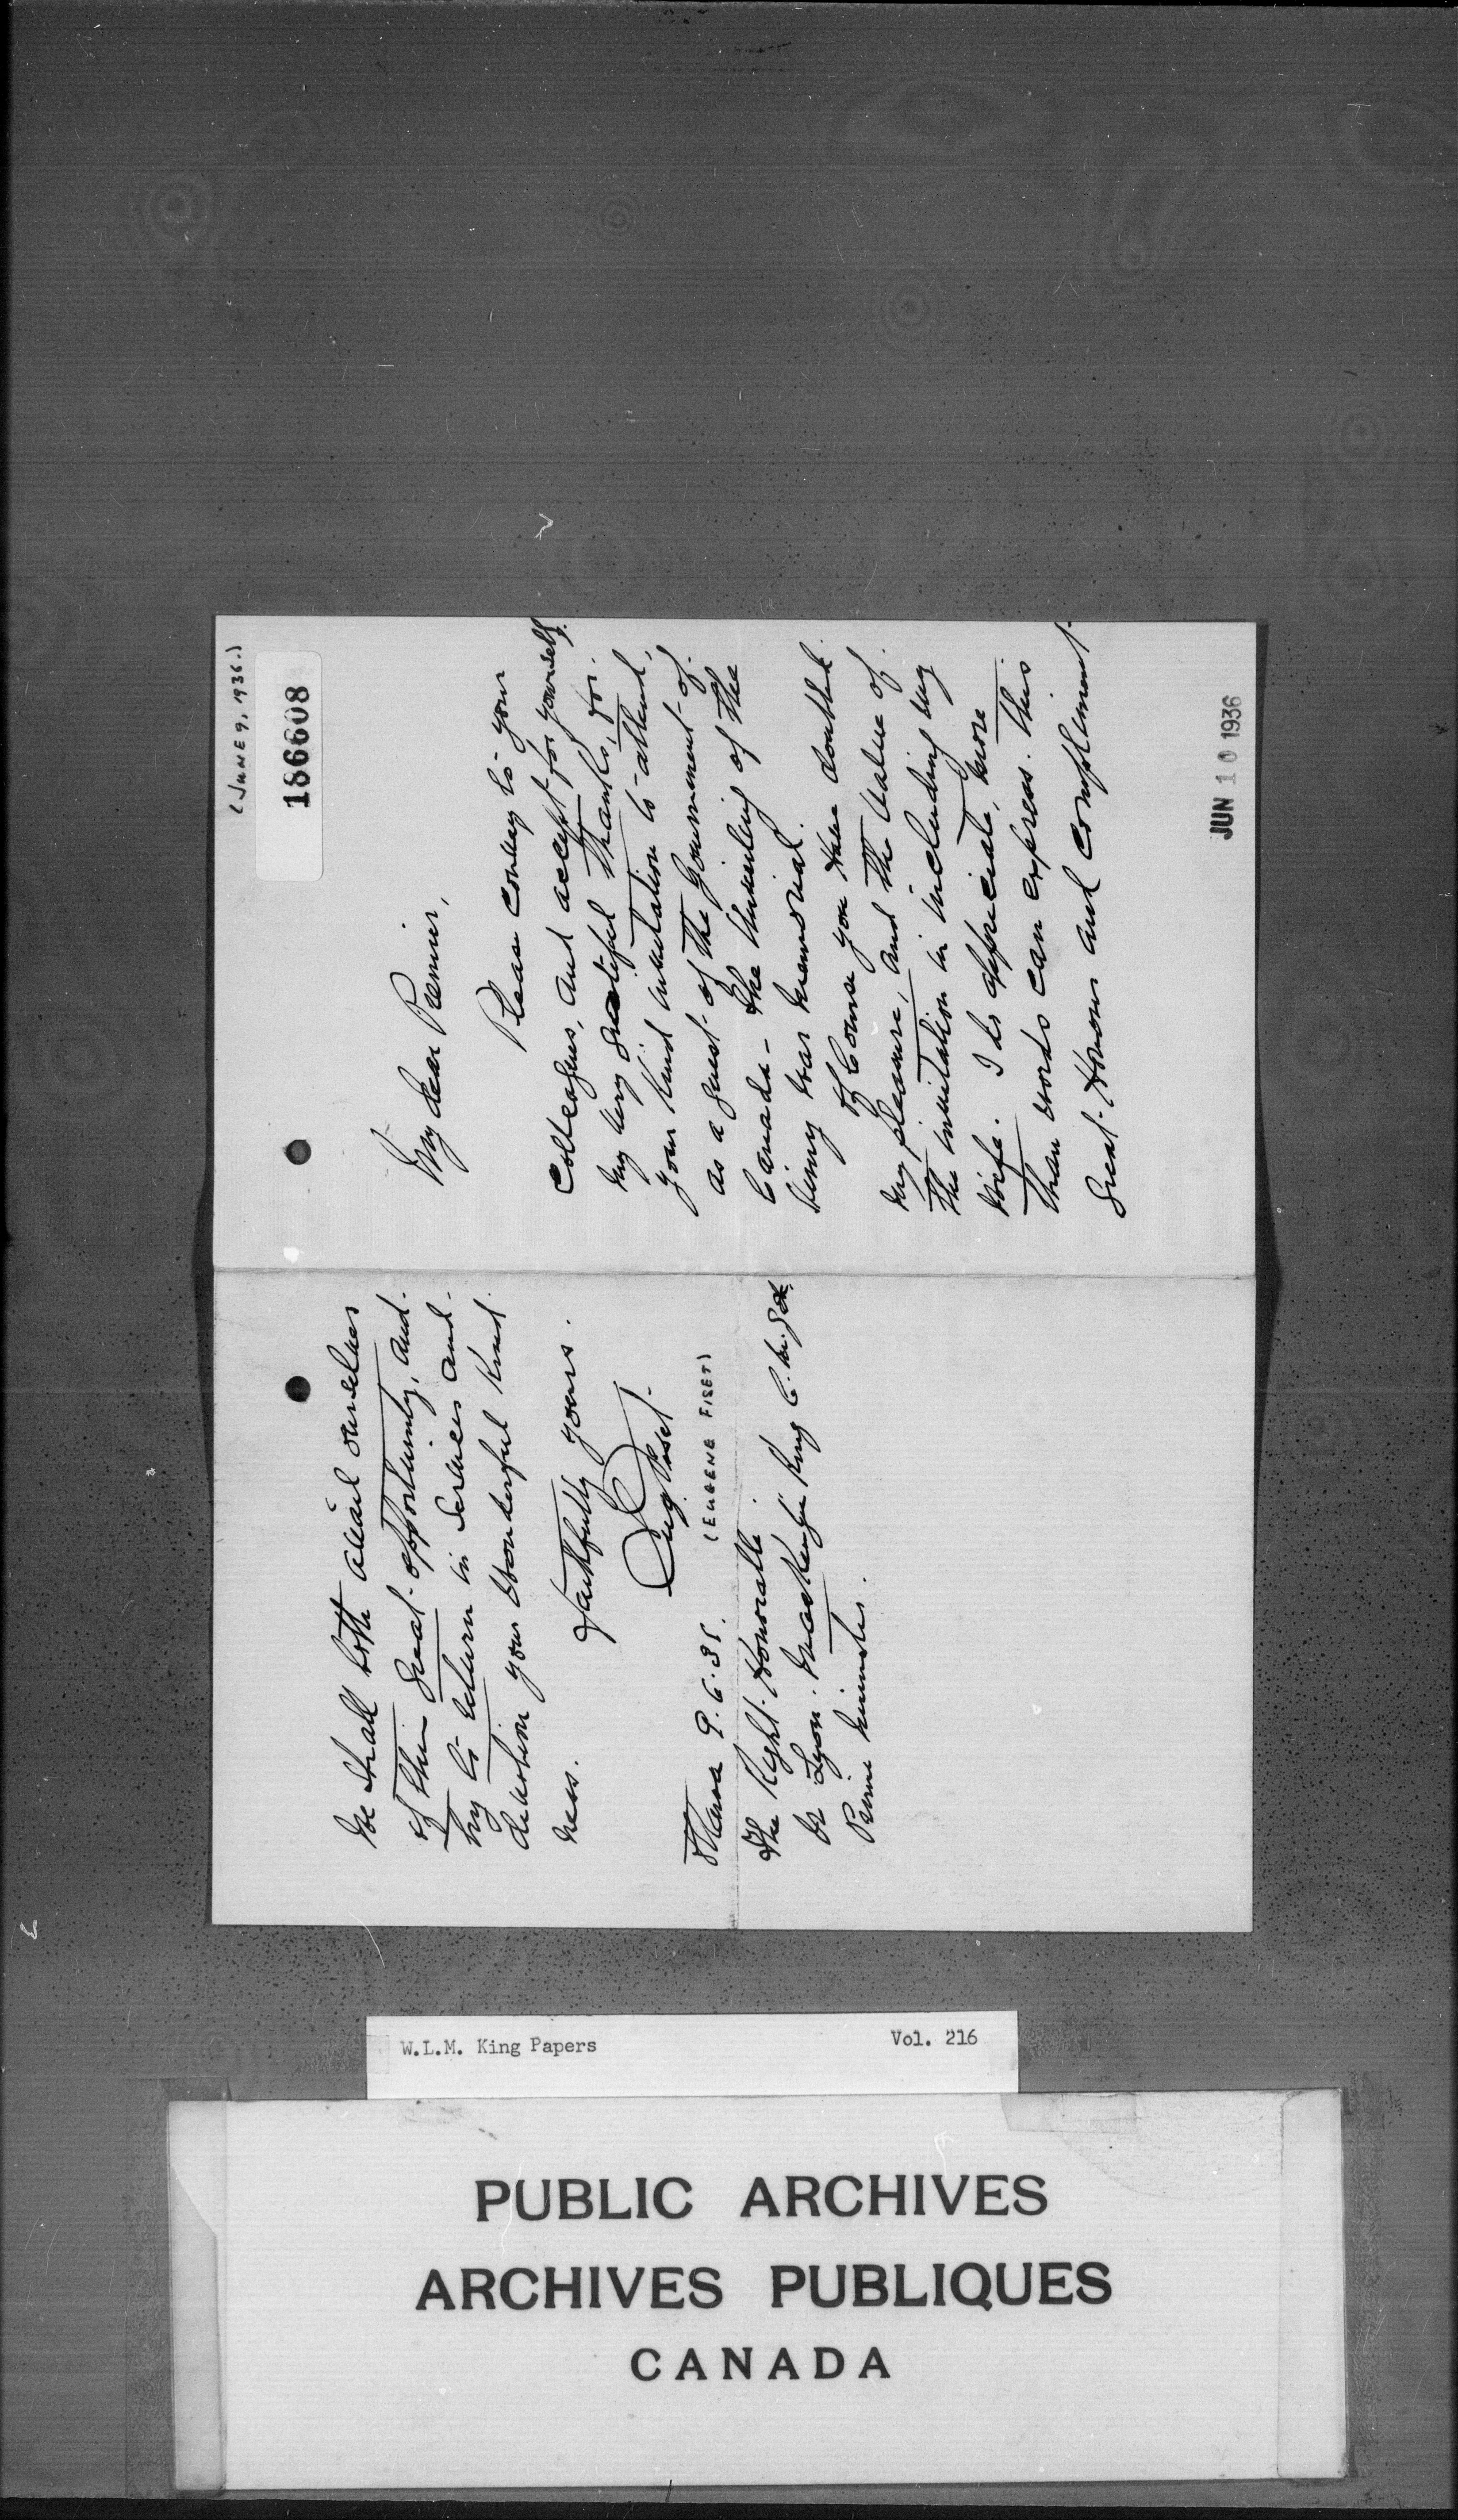 (JUNE 9, 1936.)
186608
My dear Premier,
Please convey to your
colleagues, and accept for yourself
my very grateful thanks, for
your kind invitation to attend,
as a guest of the Government of
Canada - the Unveiling of the
Vimy War Memorial.
Of Course you have doubled
my pleasure, and the value of
the invitation in including my
wife. I do appreciate, more
than words can express. this
great Honour and Compliment
JUN 10 1936
We shall both avail ourselves
of this great opportunity, and
try to return in services and
devotion your wonderful kind
ness.
Faithfully yours.
Eug Fiset
(EUGENE FISET)
Ottawa 9.6.36.
The Right Honorable
W Lyon Mackenzie King C.M.G.
Prime Minister.
W.L.M. King Papers
Vol. 216
PUBLIC ARCHIVES
ARCHIVES PUBLIQUES
CANADA